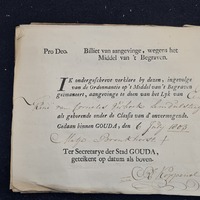 Pro Deo. Billiet van aangevinge, wegens het
Middel van 't Begraven.
IK ondergeschreve verklare by dezen, ingevolge
van de Ordonnantie op 't Middel van 't Begraven
gerenoveert, aangevinge te doen van het Lyk van
Kind van Cornelis
als gehorende onder de Classis van d'onvermogende.
Gedaan binnen GOUDA, den 6 July 1803
Bronkhorst
Ter Secretarye der Stad GOUDA,
geteikent op datum als boven.